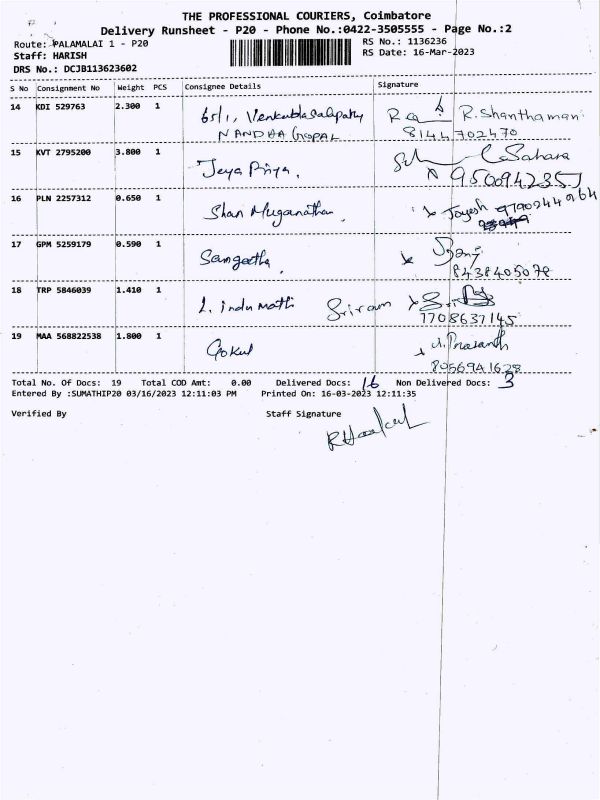 THE PROFESSIONAL COURIERS, Coimbatore
Delivery Runsheet - P20 - Phone No.:0422-3505555 - Page No.:2
Route: PALAMALAI 1 - P20
Staff: HARISH
DRS No.: DCJB113623602
RS No.: 1136236
RS Date: 16-Mar-2023
S No Consignment No Weight PCS Consignee Details Signature
14 KDI 529763 2.300 1 65/1, Venkatalasalapathy R. Shanthamani
NANDHA GOPAL 8144702470
15 KVT 2795200 3.800 1 Jeya Priya. Sahara
9500942351
16 PLN 2257312 0.650 1 Shan Muganathan. Jayesh 9790244264
17 GPM 5259179 0.590 1 Sangeetha.
8438405078
18 TRP 5846039 1.410 1 L. indu mathi Sriram
7708637145
19 MAA 568822538 1.800 1 Gokul Prasanth
8056941628
Total No. Of Docs: 19 Total COD Amt: 0.00 Delivered Docs: 16 Non Delivered Docs: 3
Entered By :SUMATHIP20 03/16/2023 12:11:03 PM Printed On: 16-03-2023 12:11:35
Verified By Staff Signature